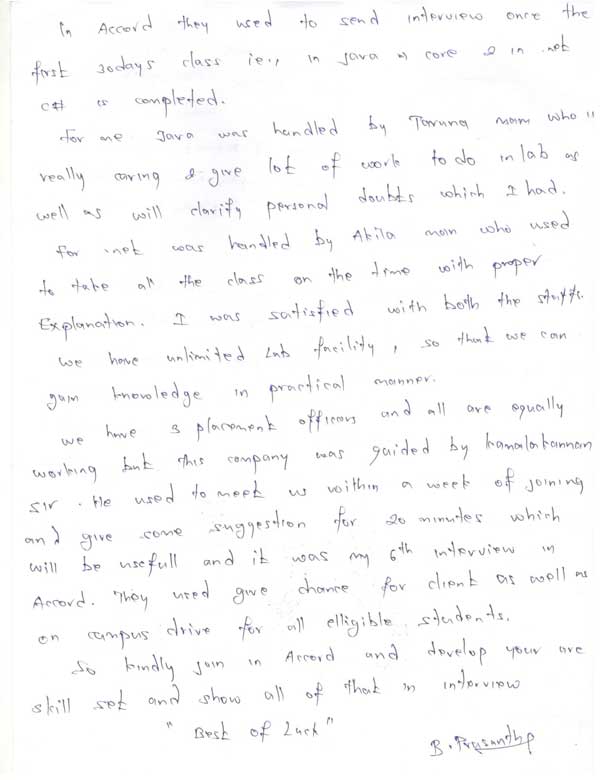 In Accord they used to send interview once the
first 30days class ie., in Java core & in .net
C# is completed.
For me Java was handled by Taruna mam who
really caring & give lot of work to do in lab as
well as will clarify personal doubts which I had.
For .net was handled by Akila mam who used
to take all the class on the time with proper
Explanation. I was satisfied with both the staffs.
we have unlimited Lab facility, so that we can
gain knowledge in practical manner.
we have 3 placement officers and all are equally
working but this company was guided by kamalakannan
sir. He used to meet us within a week of joining
and give some suggestion for 20 minutes which
will be usefull and it was my 6th interview in
Accord. They used give chance for client as well as
on campus drive for all elligible students.
So kindly join in Accord and develop your are
skill set and show all of that in interview
"Best of Luck"
B. Prasanth